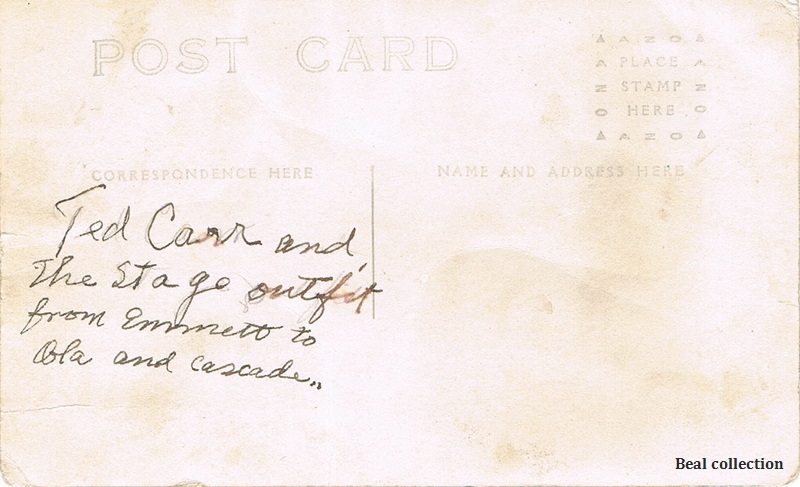 POST CARD
▲ A Z O ▲
A PLACE A
N STAMP N
O HERE O
▲ A Z O ▲
CORRESPONDENCE HERE
NAME AND ADDRESS HERE
Ted Carr and
The Stage outfit
from Emmett to
Ola and cascade„
Beal collection